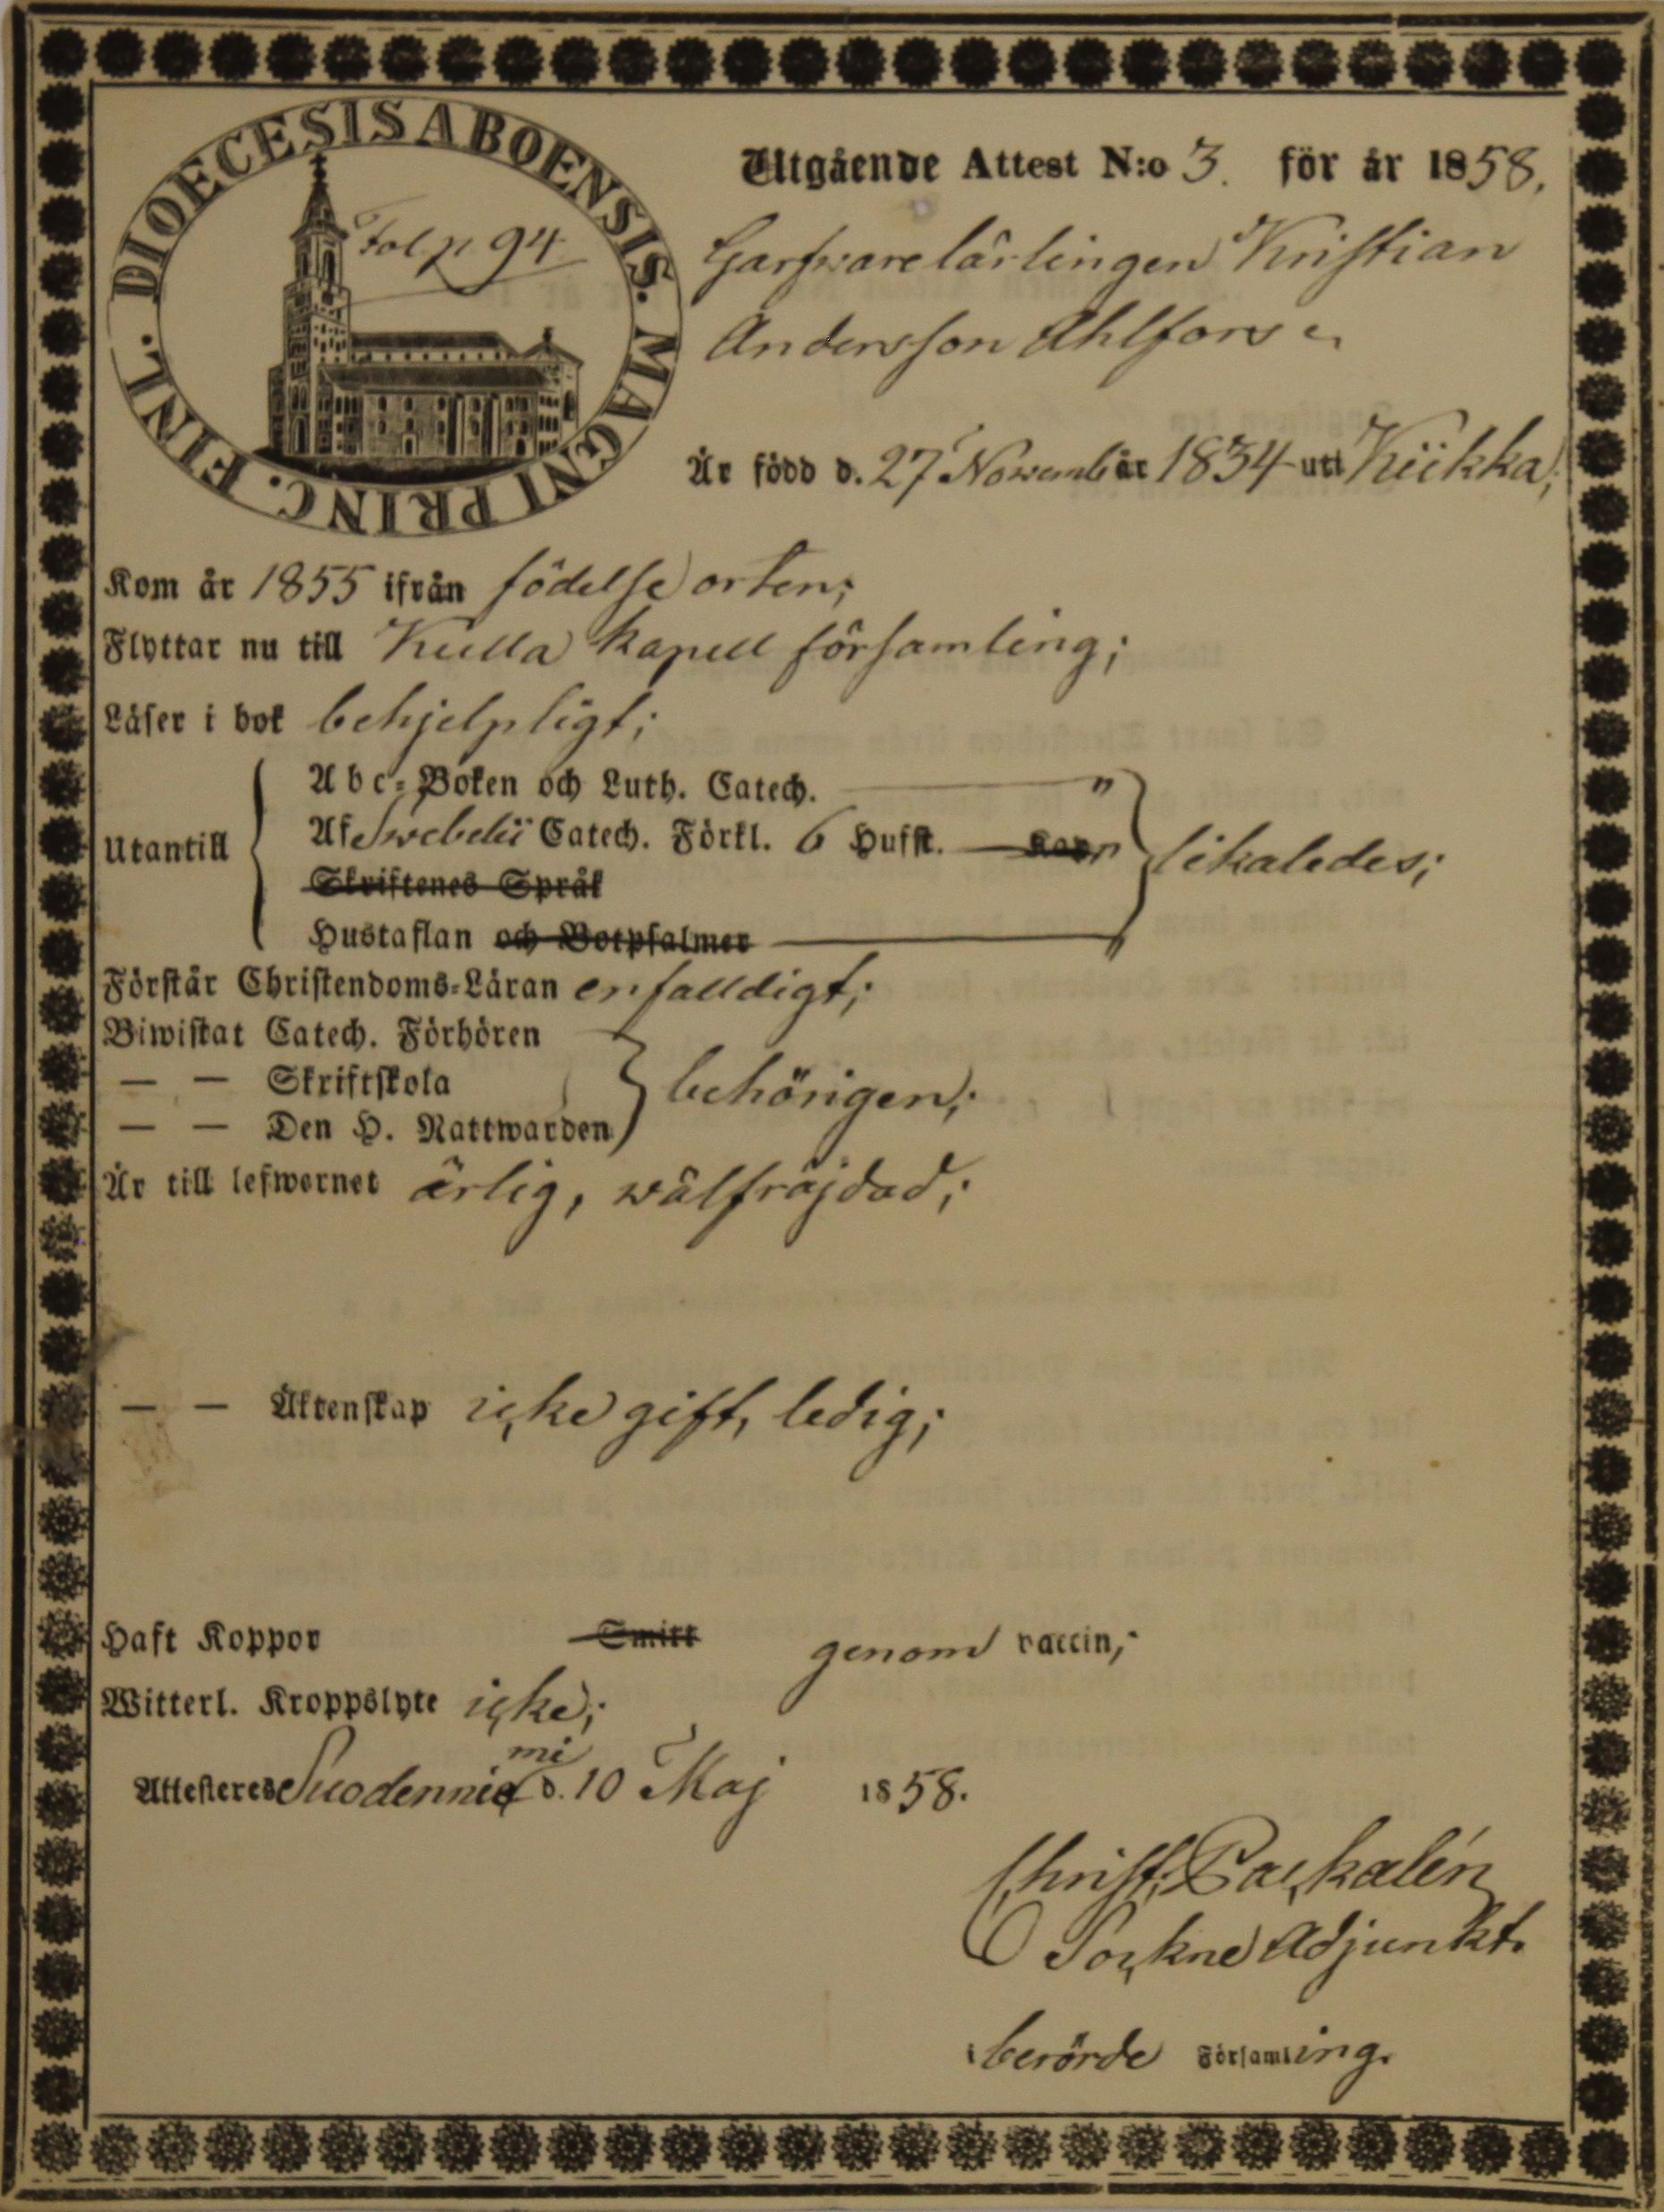 DIOECESIS ABOENSIS. MAGNI PRINC. FINL.
Fol. p. 94
Utgående Attest N:o 3. för år 1858.
Garfwarelärlingen Kristian
Andersson Ahlfors
Är född d. 27 November 1834 uti Kiikka;
Kom år 1855 ifrån födelse orten;
Flyttar nu till Kulla kapell församling;
Läser i bok behjelpligt;
Utantill
Abc-Boken och Luth. Catech. "
Af Swebelii Catech. Förkl. 6 Hufst. Kap. "
Skriftenes Språk
Hustaflan och Botpsalmer "
likaledes;
Förstår Christendoms-Läran enfalldigt;
Biwistat Catech. Förhören
— — Skriftskola
— — Den H. Nattwarden
behörigen;
Är till lefwernet ärlig, wälfräjdad;
— — Äktenskap icke gift, ledig;
Haft Koppor Smitt genom vaccin;
Witterl. Kroppslyte icke;
mi
Attesteres Suodennie d. 10 Maj 1858.
Christ. Paskalén
Sockne Adjunkt.
i berörde Församling.